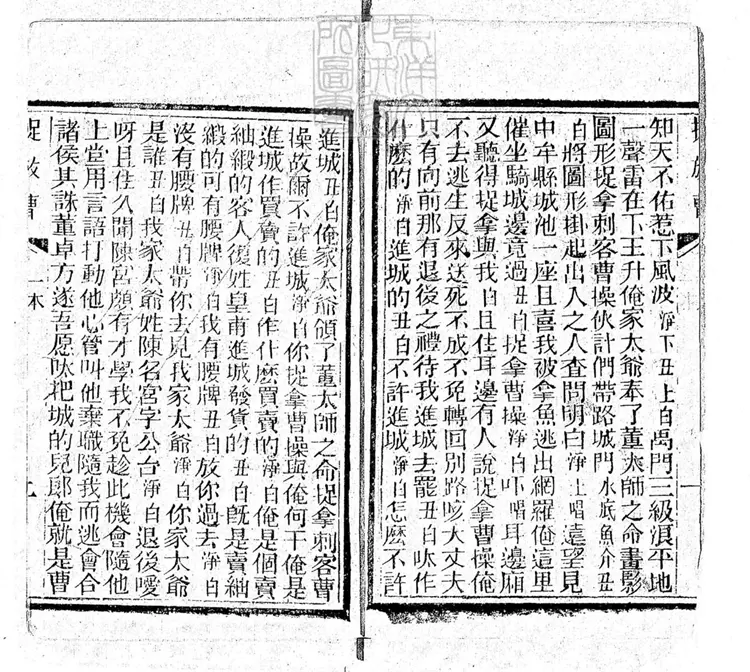 知天不佑惹下風波淨下丑上白禹門三級浪平地
一聲雷在下王升俺家太爺奉了董太師之命畫影
圖形捉拿刺客曹操伙計們帶路城門水底魚介丑
白將圖形掛起出人之人查問明白淨上唱遠望見
中牟縣城池一座且喜我破拿魚逃出網羅俺這里
催坐騎城邊竟過丑白捉拿曹操淨白吓唱耳邊廂
又聽得捉拿與我白且住耳邊有人說捉拿曹操俺
不去逃生反來送死不成不免轉回別路咳大丈夫
只有向前那有退後之禮待我進城去罷丑白呔作
什麽的淨白進城的丑白不許進城淨白怎麽不許
捉放曹
一本
進城丑白俺家太爺領了董太師之命捉拿刺客曹
操故爾不許進城淨白你捉拿曹操與俺何干俺是
進城作買賣的丑白作什麽買賣的淨白俺是個賣
紬緞的客人復姓皇甫進城發貨的丑白旣是賣紬
緞的可有腰牌淨白我有腰牌丑白放你過去淨白
沒有腰牌丑白帶你去見我家太爺淨白你家太爺
是誰丑白我家太爺姓陳名宮字公台淨白退後噯
呀且住久聞陳宮頗有才學我不免趁此機會隨他
上堂用言語打動他心管叫他棄職隨我而逃會合
諸侯其誅董卓方遂吾愿呔把城的兒郎俺就是曹